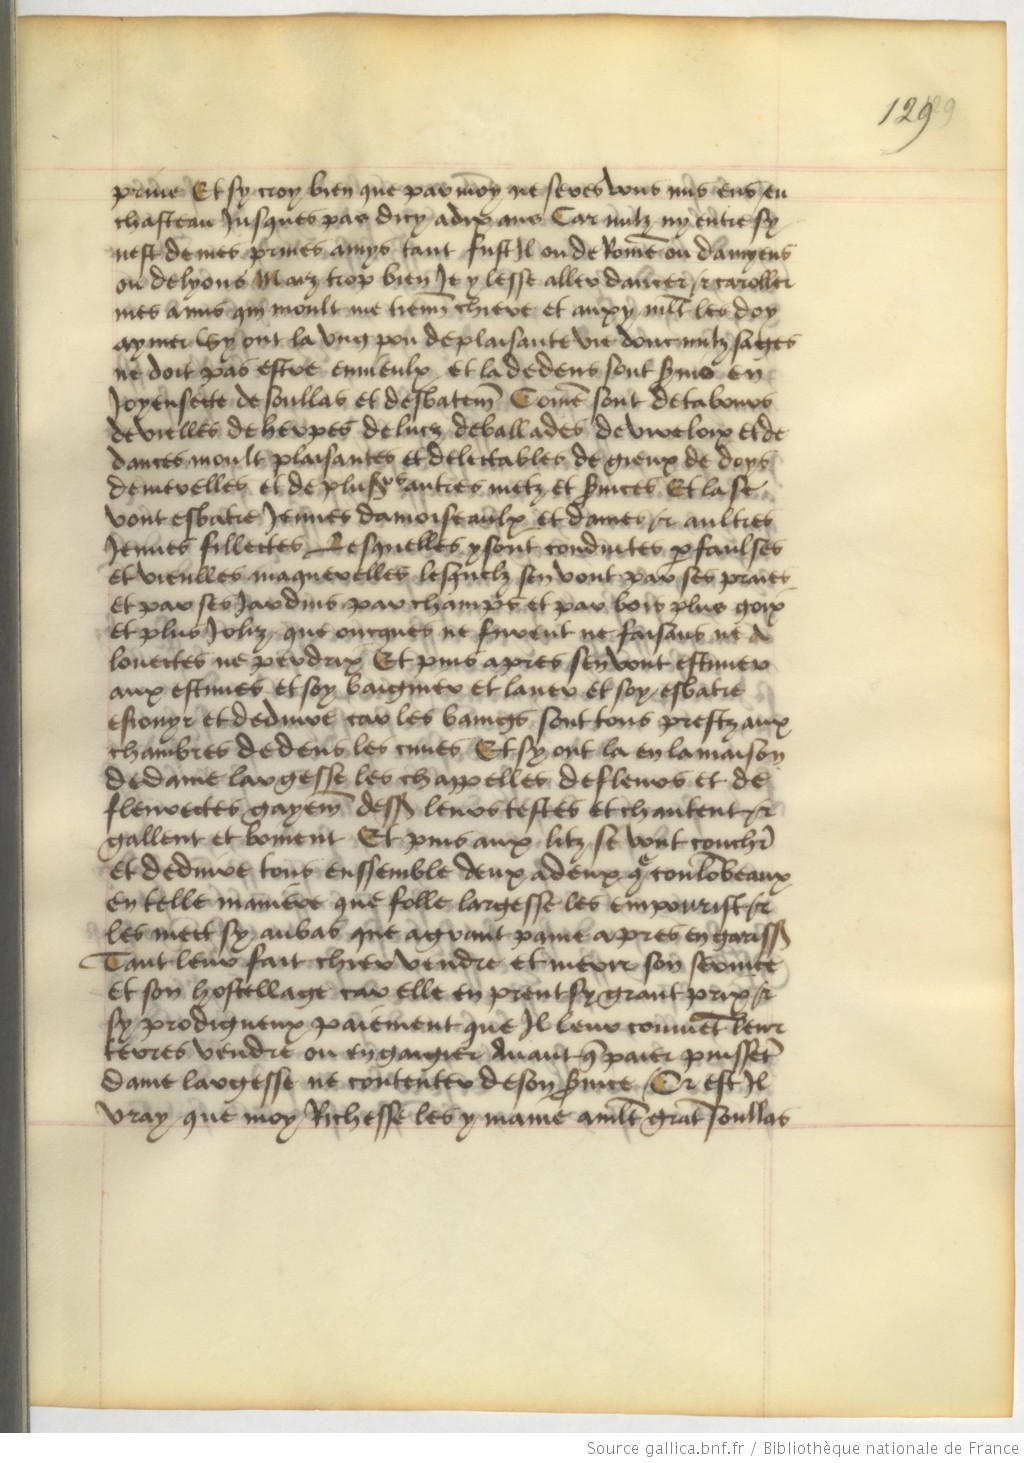 129
prive Et sy croy bien que par moy ne seres vous mis ens en
chasteau Jusques par dicy a dix ans Car nulz ny entre sy
nest de mes prives amys tant fust Il ou de Rome ou damyens
ou de lyons Maiz trop bien Je y lesse aller dancer et caroller
mes amis qui moult me tienn̄t chiere et auxy mlt les doy
aymer Sy ont la vng pou de plaisante vie dont nulz sages
ne doit pas estre envieulx et la dedens sont s̄vis en
Joyeusete de soullas et desbatem̄t Com̄e sont de tabours
de vielles de herpes de lucz de ballades de vireloix et de
dances moult plaisantes et delectables de gieux de doys
de merelles et de plusrs autres metz et s̄vices Et la se
vont esbatre Jeunes damoiseaulx et dames et aultres
Jeunes fillectes Lesquelles y sont conduites p faulses
et vieulles maquerelles lesquelz sen vont par ses praies
et par ses Jardins par champs et par bois plus goix
et plus Joliz que oncques ne furent ne faisans ne a
louectes ne perdrix Et puis apres sen vont estuver
aux estuves et soy baigner et laver et soy esbatre
esiouyr et deduire car les baings sont tous prestz aux
chambres dedens les cuves Et sy ont la en la maison
de dame largesse les chappelles de fleurs et de
fleurectes gayem̄t dess leurs testes et chantent et
gallent et boivent Et puis aux litz se vont couchr
et deduire tous enssemble deux a deux q̄ coulōbeaux
en telle maniere que folle largesse les empourist et
les mect sy au bas que a grant paine apres en gariss
Tant leur fait chier vendre et merir son service
et son hostellage car elle en prent sy grant prix et
sy prodigueux paiement que Il leur convient leur
terres vendre ou engaigier Avant q̄ paier puissēt
dame largesse ne contenter de son s̄vice Or est Il
vray que moy Richesse les y maine a mlt grāt soullas
Source gallica.bnf.fr / Bibliothèque nationale de France